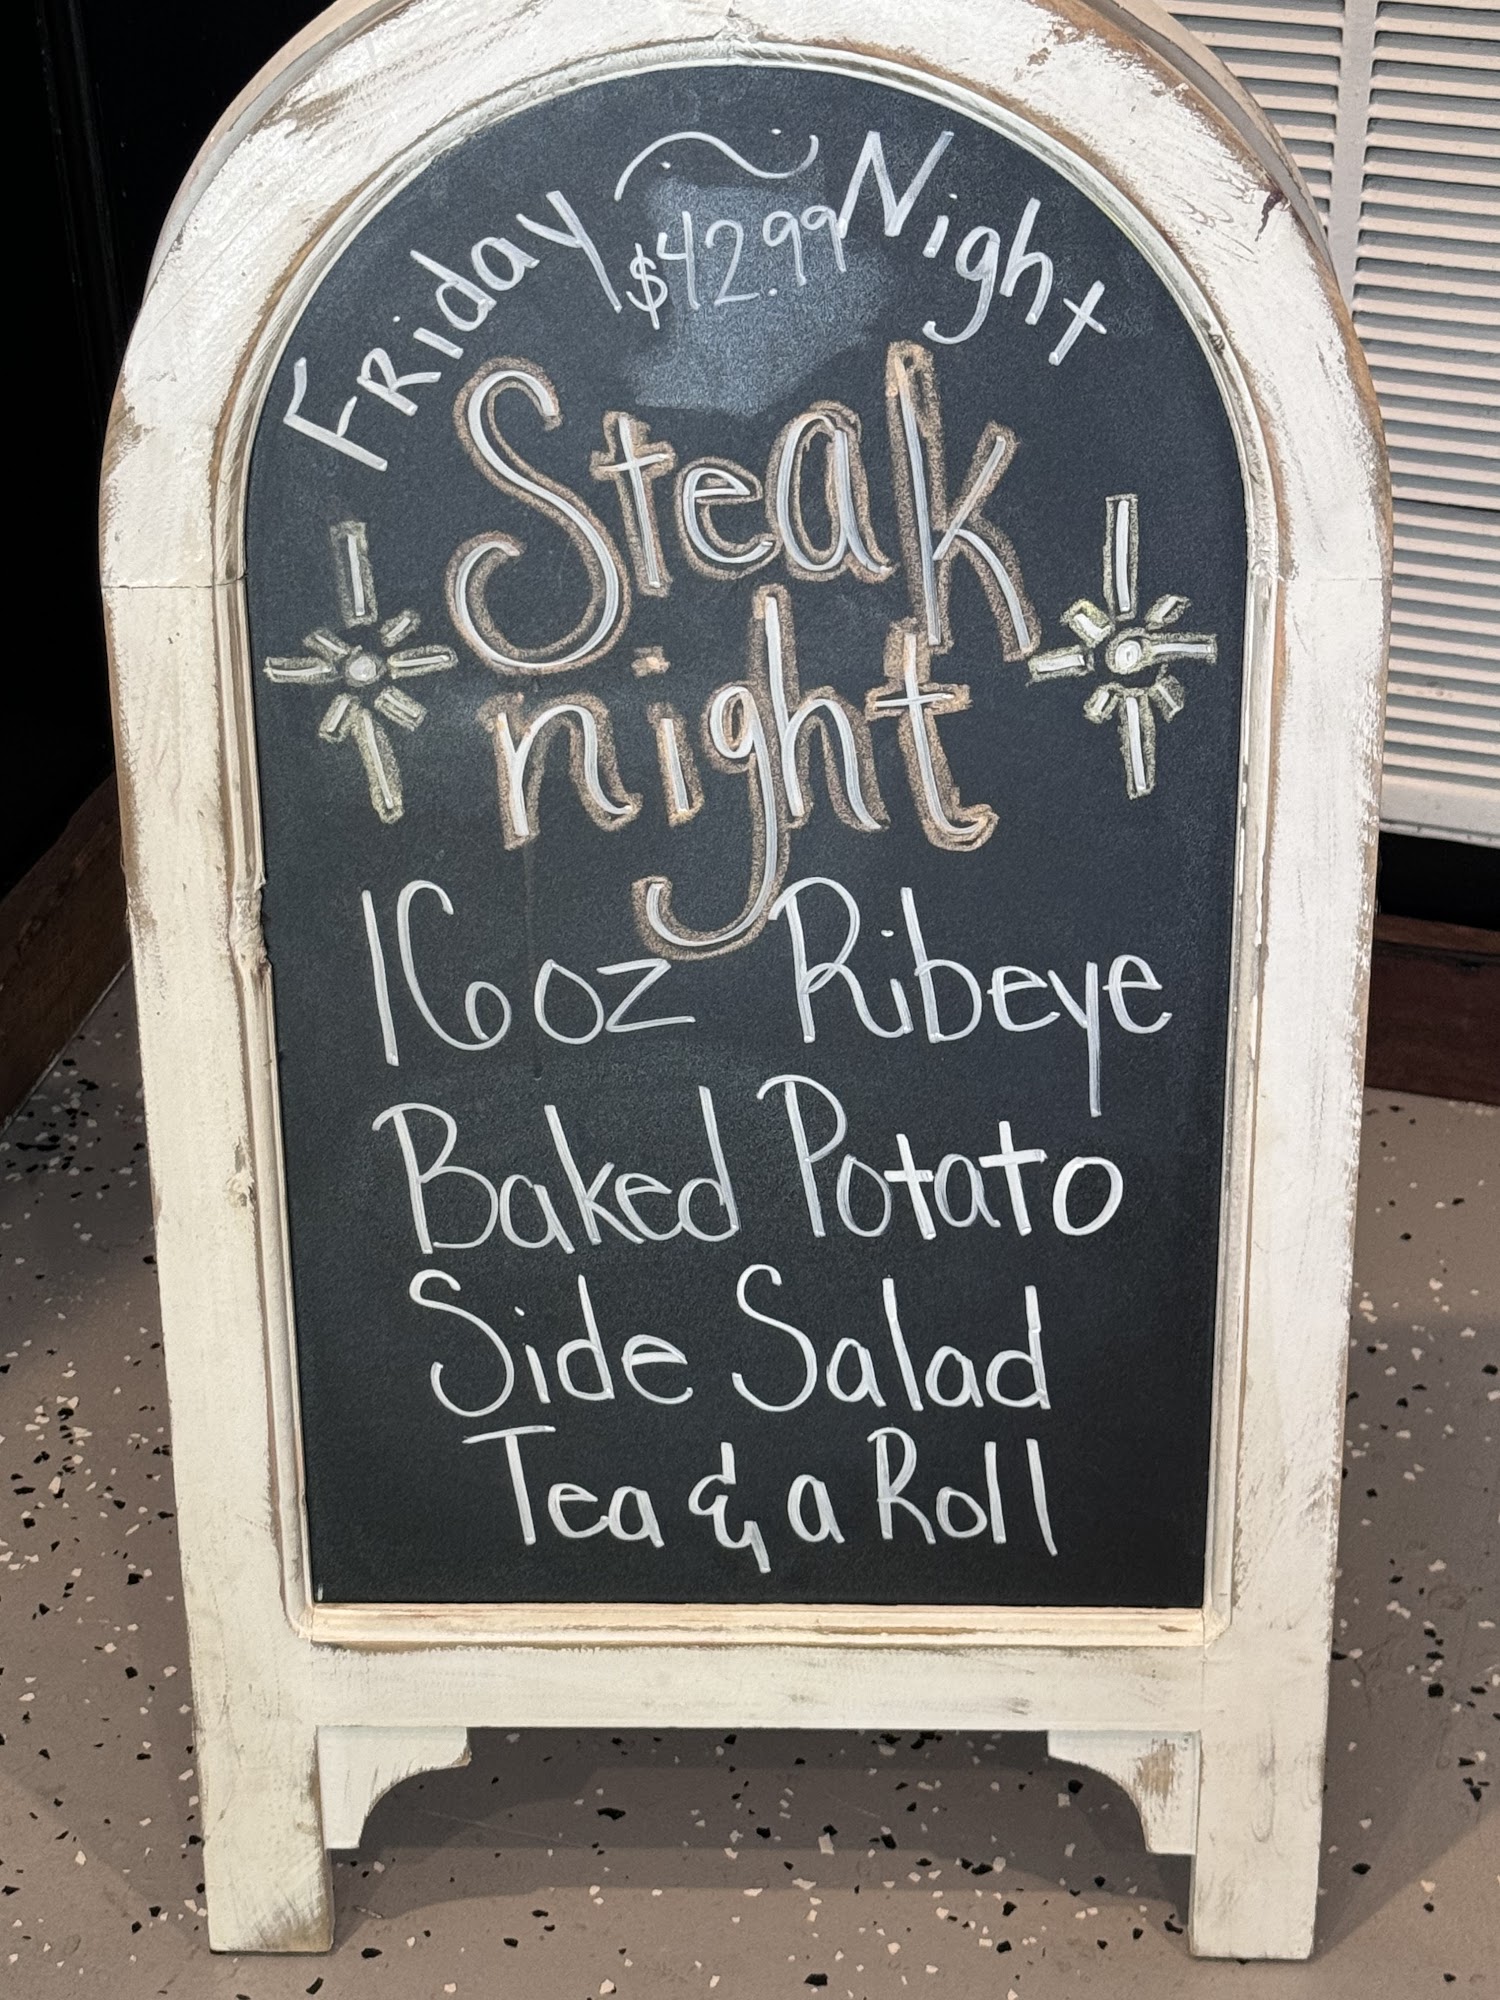 Friday Night
$42.99
Steak
night
16oz Ribeye
Baked Potato
Side Salad
Tea & a Roll